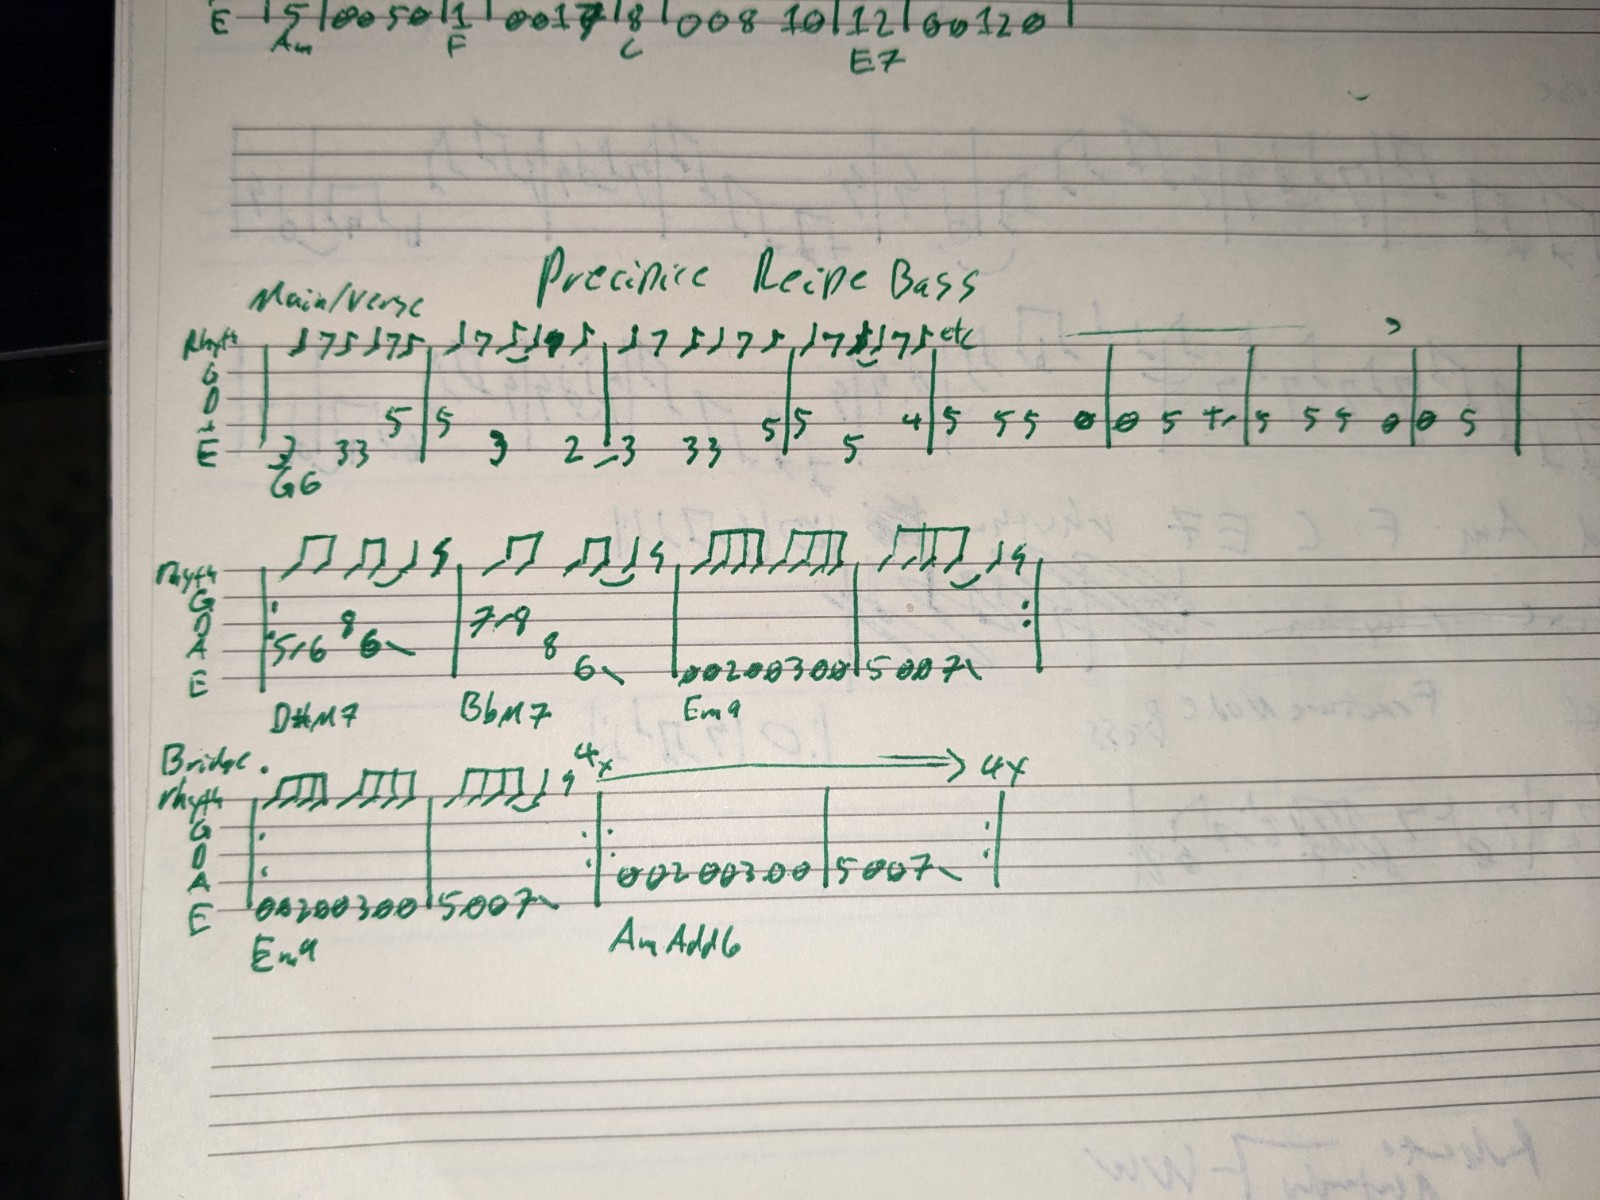 E |5|0050|1|0017|8|008 10|12|00120|
Am F C E7
Precipice Recipe Bass
Main/Verse
Rhyth etc
G
D
5|5 5|5 4|5 55 0|0 5 4|5 55 0|0 5|
E 3 33 3 2 3 33 5
G6
rhyth
G
D 7 8
A 5 6 8 6 8
E 6 00200300|5007
D#M7 BbM7 Em9
Bridge 4x 4x
rhyth
G
D
A 00200300|5007
E 00200300|5007
Em9 Am Add6